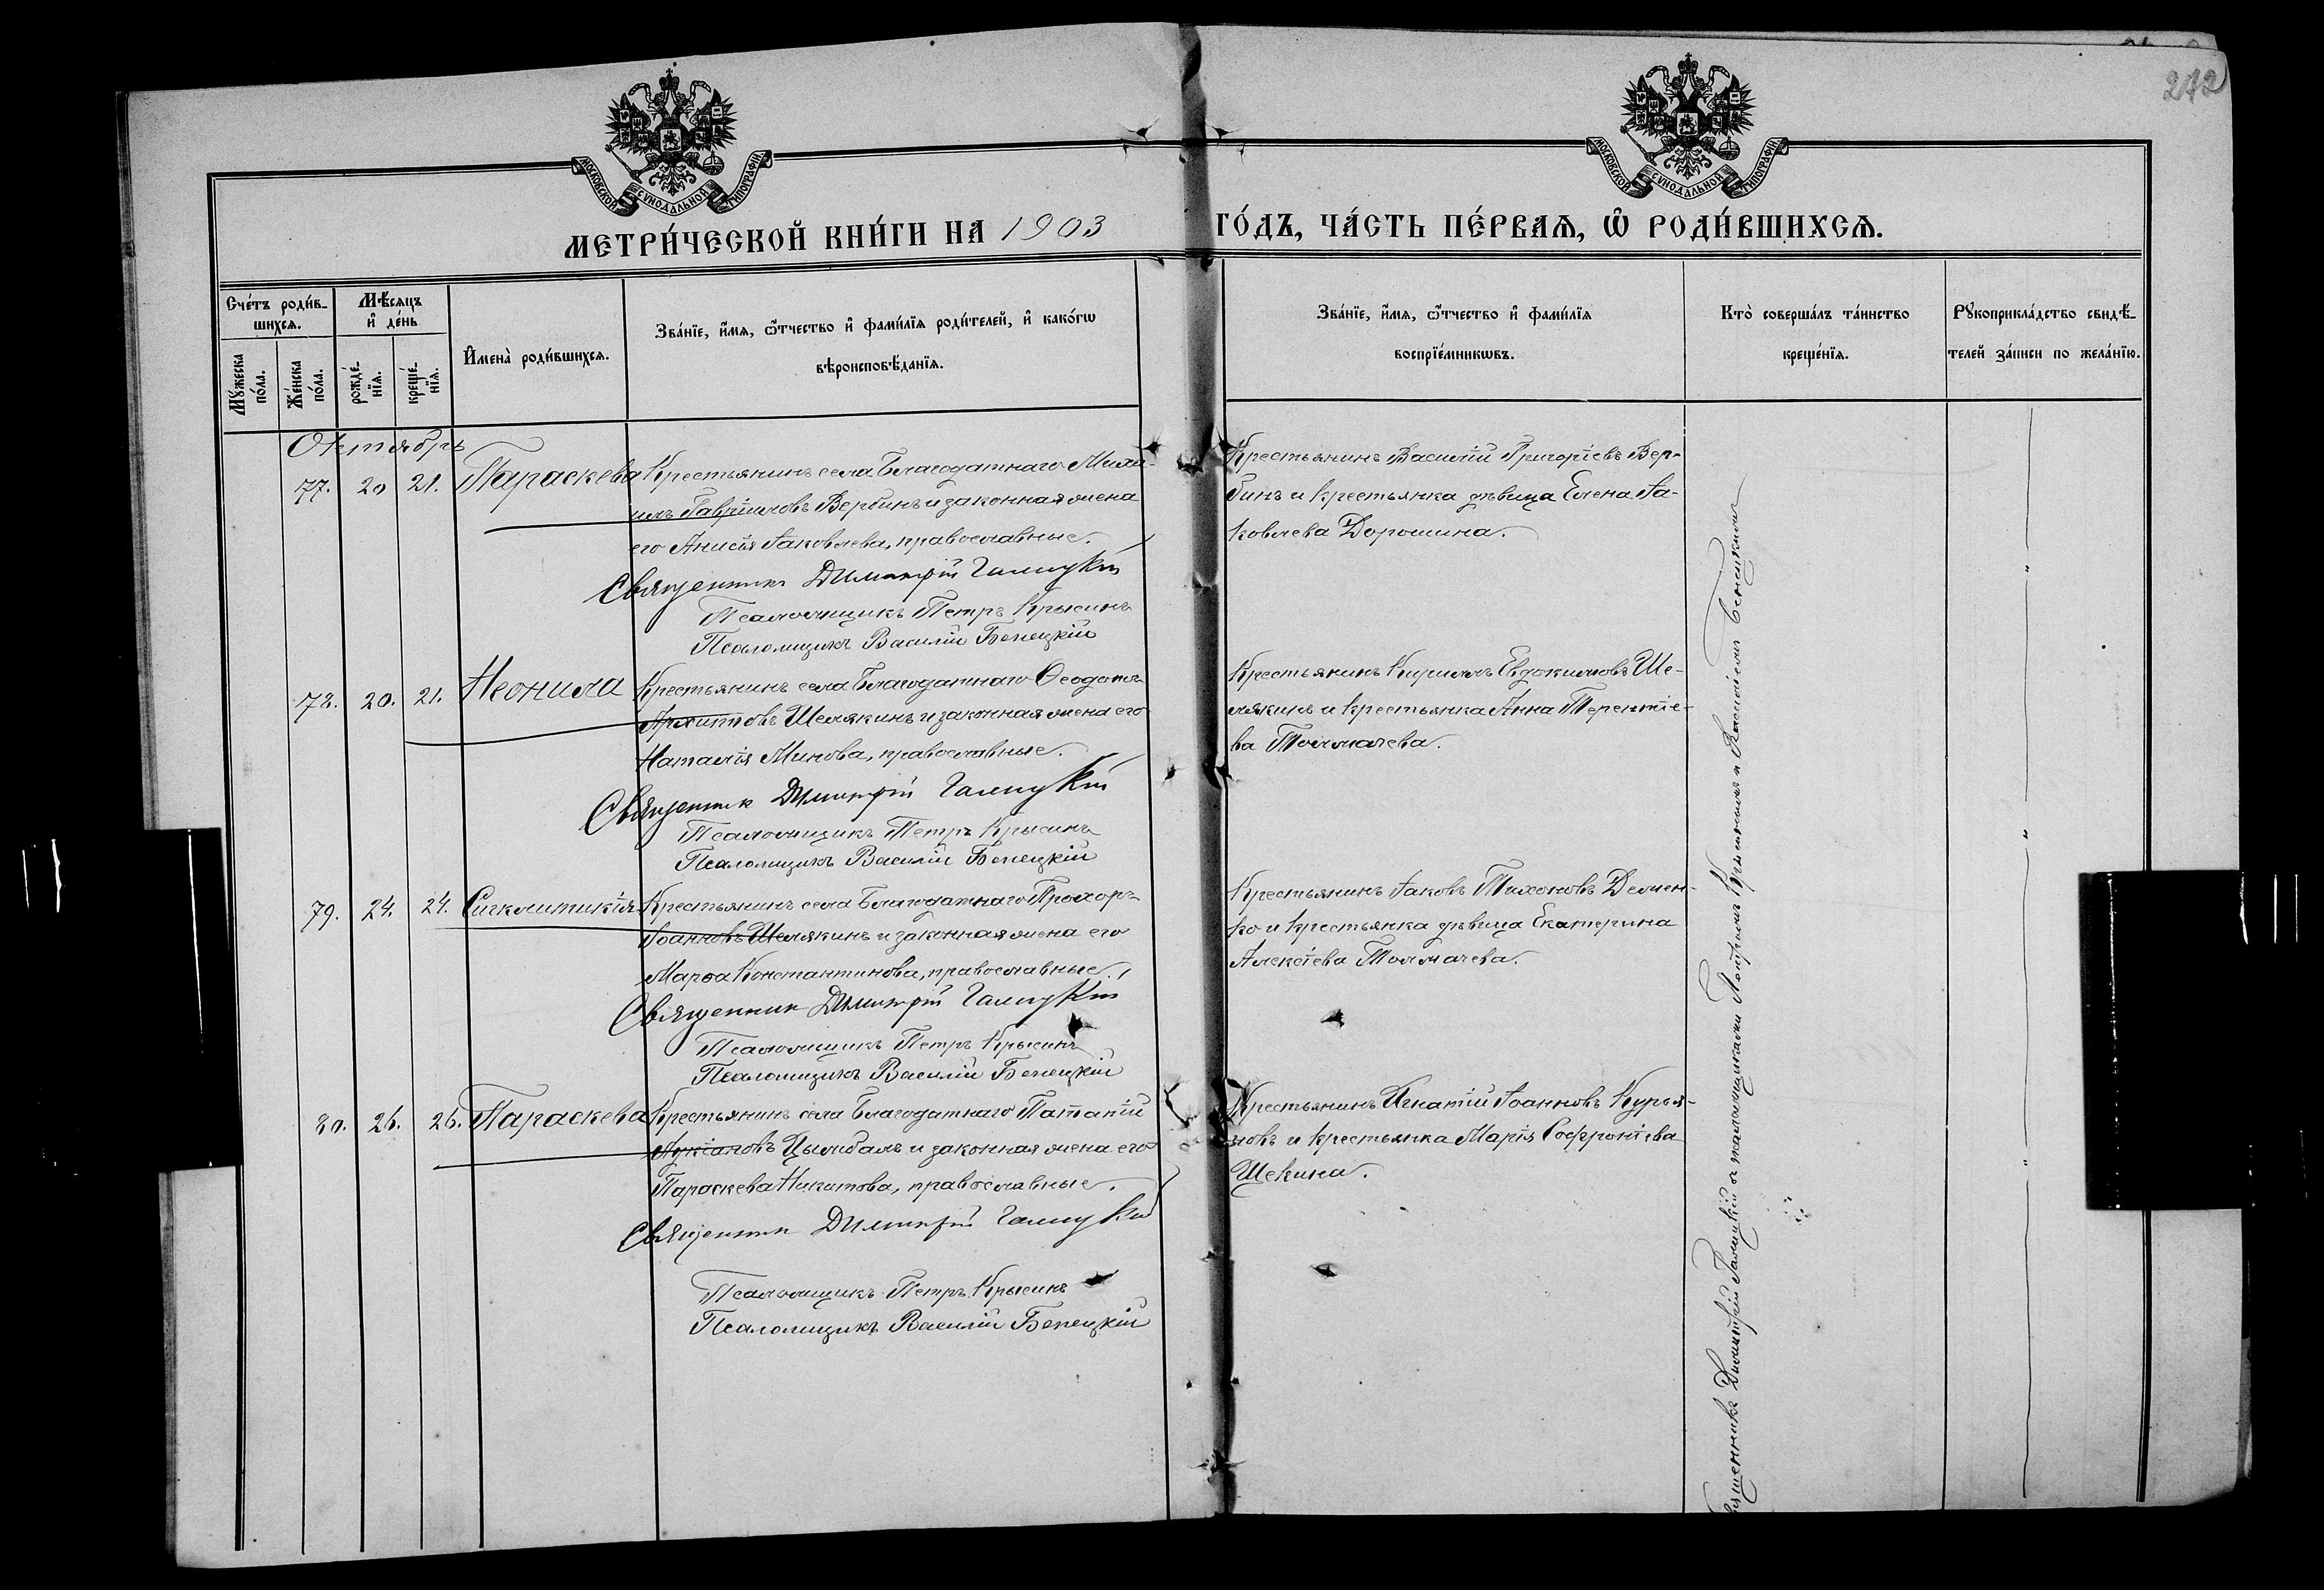 242
МОСКОВСКОЙ СѴНОДАЛЬНОЙ ТИПОГРАФІИ.
МОСКОВСКОЙ СѴНОДАЛЬНОЙ ТИПОГРАФІИ.
МЕТРИ́ЧЕСКОЙ КНИ́ГИ НА 1903
ГО́ДЪ, ЧА́СТЬ ПЕ́РВАЯ, Ѽ РОДИ́ВШИХСЯ.
Сче́тъ роди́в-
шихся.
Му́жеска
по́ла.
Же́нска
по́ла.
Мѣ́сяцъ
и҆ де́нь
рожде́-
нїя.
креще́-
нїя.
И҆мена̀ роди́вшихся.
Зва́нїе, и҆́мя, ѻ҆́тчество и҆ фами́лїя роди́телей, и҆ како́гѡ
вѣроисповѣ́данїя.
Зва́нїе, и҆́мя, ѻ҆́тчество и҆ фами́лїя
воспрїе́мникѡвъ.
Кто̀ соверша́лъ та́инство
креще́нїя.
Рꙋкоприкла́дство свидѣ́-
телей за́писи по жела́нїю.
Октябрь
77. 20 21. Параскева
Крестьянинъ села Благодатнаго Миха-
илъ Гавріиловъ Вербинъ и законная жена
его Анисія Іаковлева, православные.
Священникъ Димитрій Галицкій
Псаломщикъ Петръ Крысинъ
Псаломщикъ Василій Бенецкій
Крестьянинъ Василій Григоріевъ Вер-
бинъ и крестьянка дѣвица Елена Іа-
ковлева Дорошина.
78. 20. 21. Неонила
Крестьянинъ села Благодатнаго Ѳеодотъ
Архиповъ Шемякинъ и законная жена его
Наталія Минова, православные.
Священник Димитрій Галицкій
Псаломщикъ Петръ Крысинъ
Псаломщикъ Василій Бенецкій
Крестьянинъ Кириллъ Евдокимовъ Ше-
мякинъ и крестьянка Анна Терентіе-
ва Толмачева.
79. 24. 24. Сигклитикія
Крестьянинъ села Благодатнаго Прохоръ
Іоанновъ Шемякинъ и законная жена его
Марѳа Константинова, православные.
Священник Димитрій Галицкій
Псаломщикъ Петръ Крысинъ
Псаломщикъ Василій Бенецкій
Крестьянинъ Іаковъ Тихоновъ Демен-
ко и крестьянка дѣвица Екатерина
Алексіева Толмачева.
80. 26. 26. Параскева
Крестьянинъ села Благодатнаго Патапій
Лукіановъ Цымбалъ и законная жена его
Параскева Никитова, православные.
Священник Димитрій Галицкій
Псаломщикъ Петръ Крысинъ
Псаломщикъ Василій Бенецкій
Крестьянинъ Игнатій Іоанновъ Курья-
новъ и крестьянка Марія Софроніева
Щекина.
Священникъ Димитрій Галицкій съ псаломщиками Петромъ Крысинымъ и Василіемъ Бенецкимъ